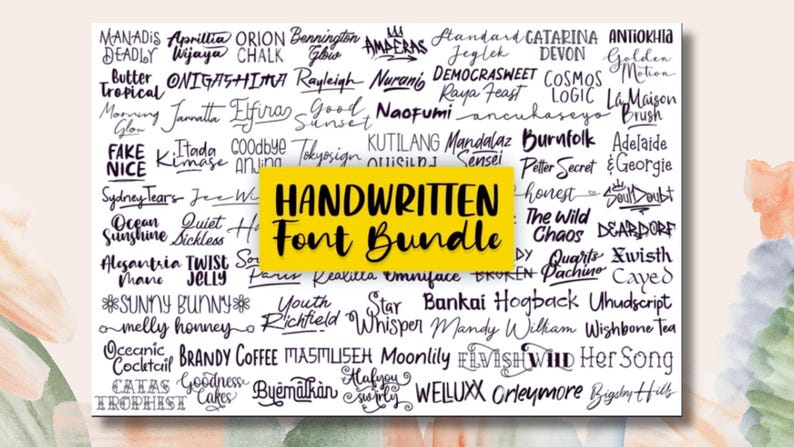 MANADIS DEADLY
Aprillia Wijaya
ORION CHALK
Bennington Glow
AMPERAS
Standard Jeglek
CATARINA DEVON
ANTIOKHIA
Golden Motion
Butter Tropical
ONIGASHIMA
Rayleigh
Nurani
DEMOCRASWEET
Raya Feast
COSMOS LOGIC
La Maison Brush
Morning Glow
Jannatta
Elfira
Good Sunset
Naofumi
ancukaseyo
FAKE NICE
Itada Kimase
Goodbye
Tokyosign
KUTILANG
Mandalaz Sensei
Burnfolk
Petter Secret
Adelaide & Georgie
Sydney Tears
honest
Soul Doubt
HANDWRITTEN
Font Bundle
Ocean Sunshine
Quiet Sickless
The Wild Chaos
DEARDORF
Alexantria Mane
TWIST JELLY
Paris
Realilla
Omniface
BROKEN
Quarts Pachino
Xwisth
Cayed
SUNNY BUNNY
Youth Richfield
Star Whisper
Bankai
Hogback
Uhudscript
melly honney
Mandy William
Wishbone Tea
Oceanic Cocktail
BRANDY COFFEE
MASMLISEH
Moonlily
ELVISH WILD
Her Song
CATAS TROPHIST
Goodness Cakes
Byemathan
Alafyou swirly
WELLUXX
Orleymore
Bigsby Hills